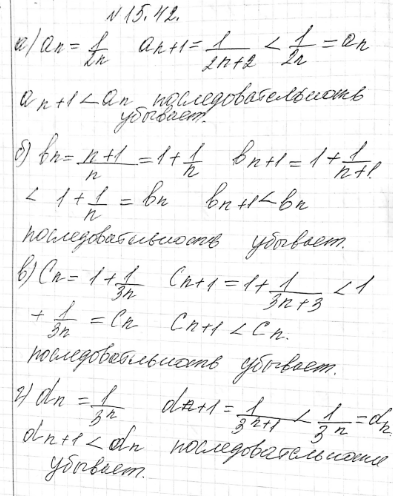 №15.42.
а) an = 1/2n   an+1 = 1/2n+2 < 1/2n = an
an+1 < an последовательность
убывает.
б) bn = n+1/n = 1+1/n   bn+1 = 1+1/n+1
< 1+1/n = bn   bn+1 < bn
последовательность убывает.
в) Cn = 1+1/3n   Cn+1 = 1+1/3n+3 < 1
+ 1/3n = Cn   Cn+1 < Cn.
последовательность убывает.
г) dn = 1/3^n   dn+1 = 1/3^n+1 < 1/3^n = dn
dn+1 < dn последовательность
убывает.